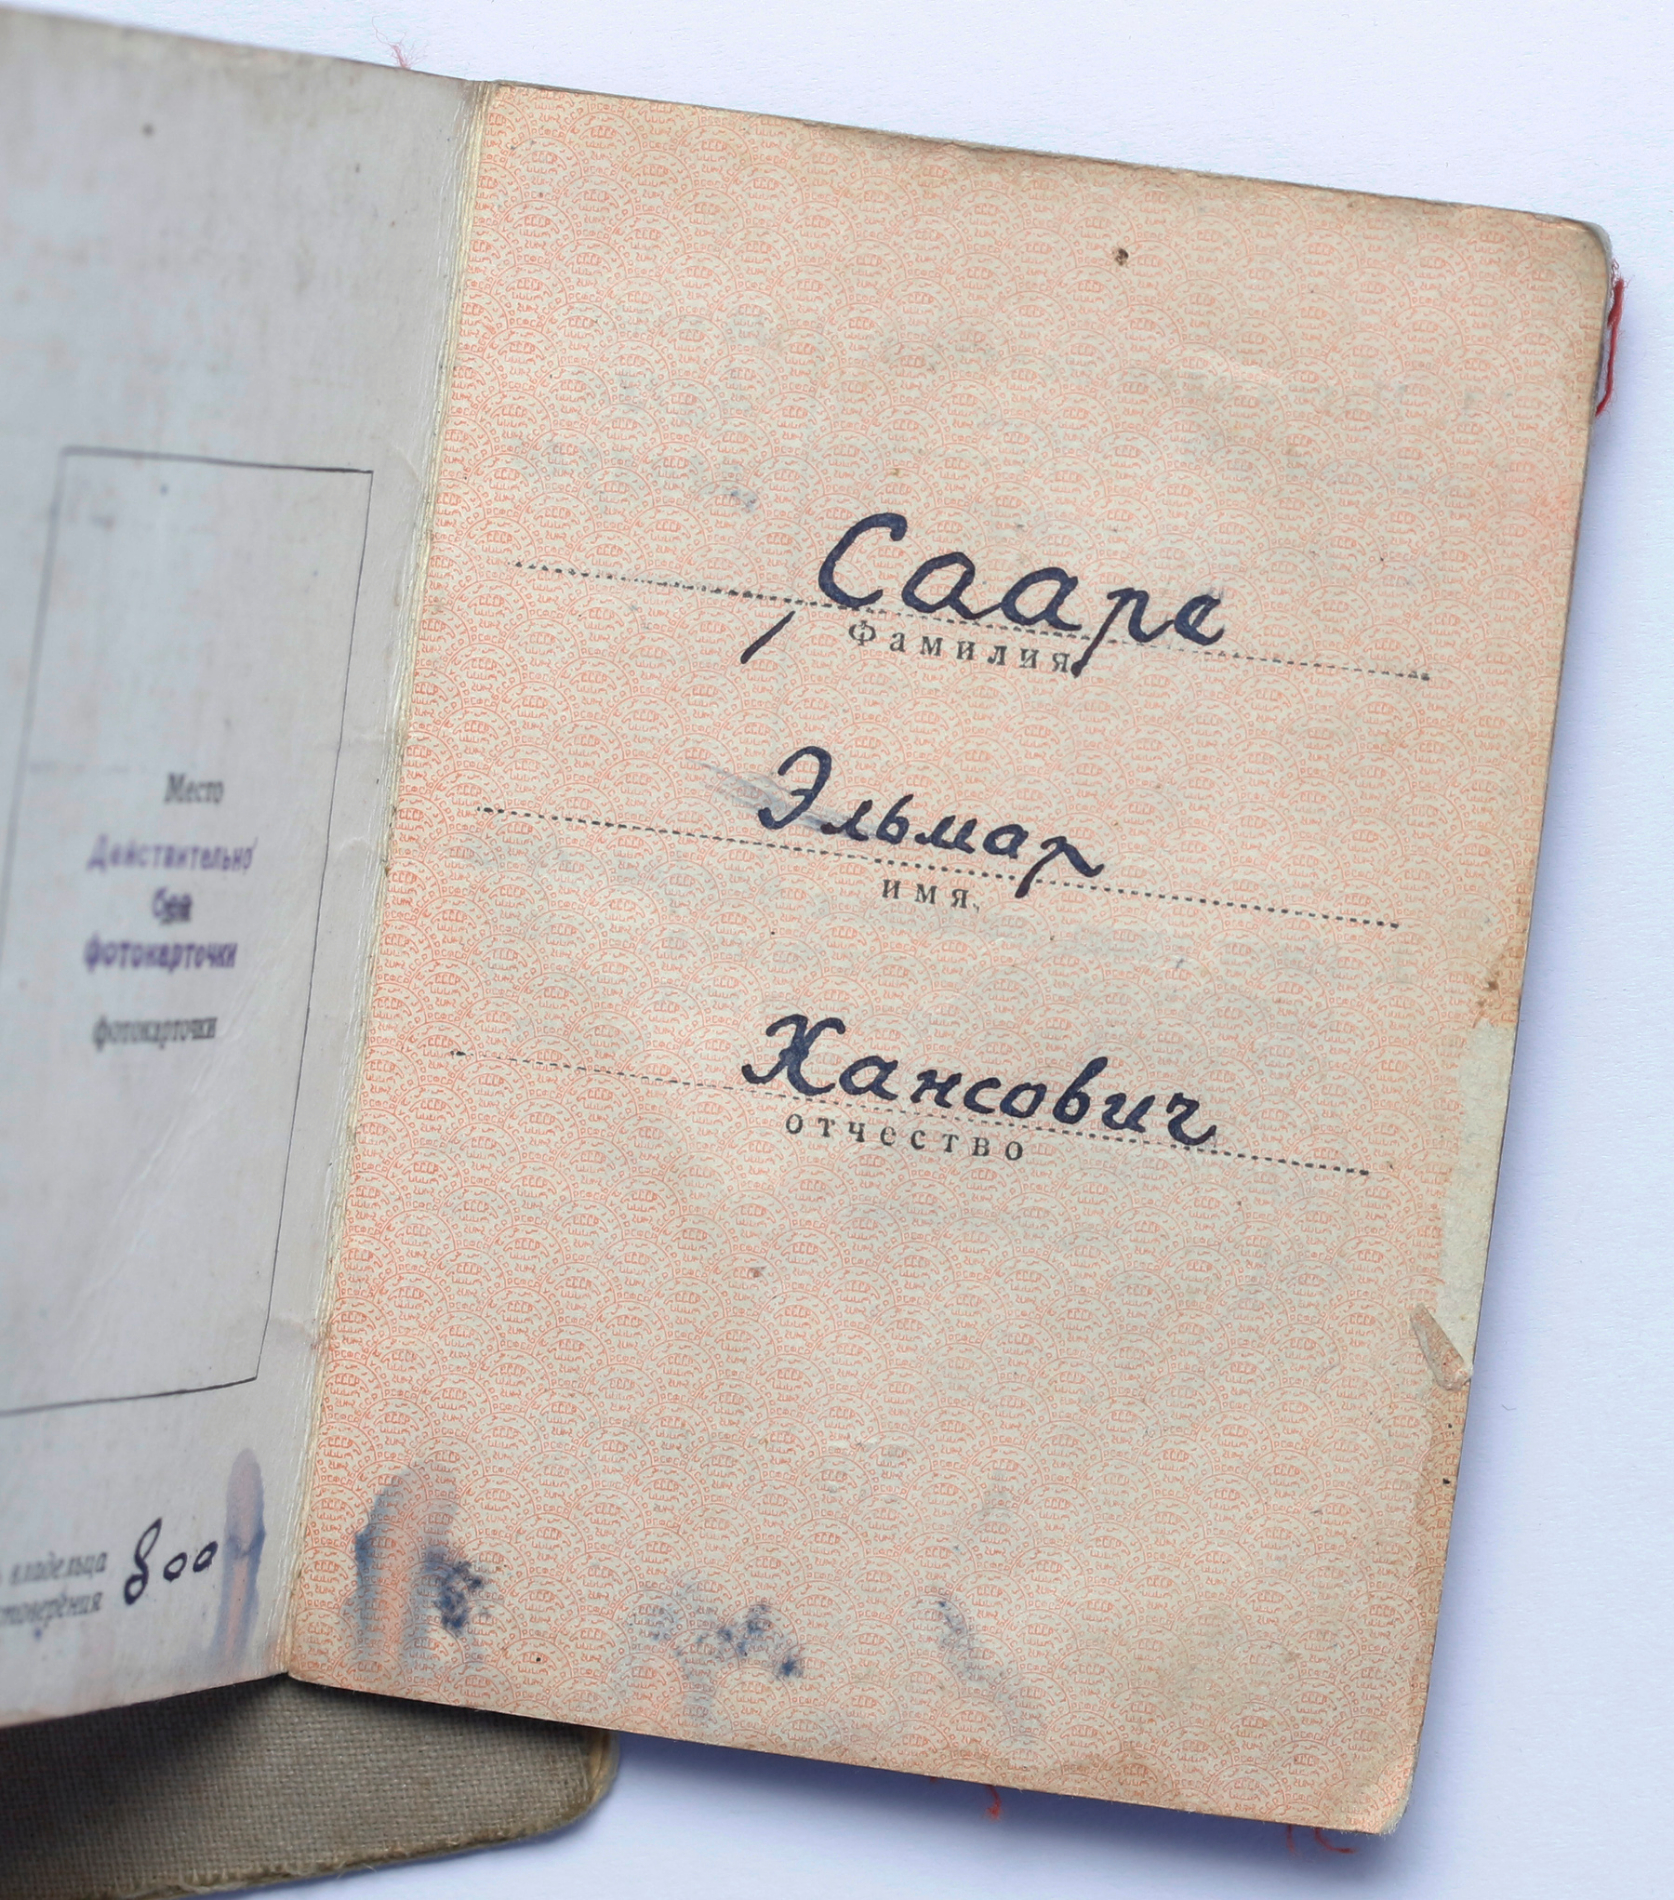 Место
Действительно
без
фотокарточки
фотокарточки
владельца
800
Сааре
фамилия
Эльмар
имя
Хансович
отчество